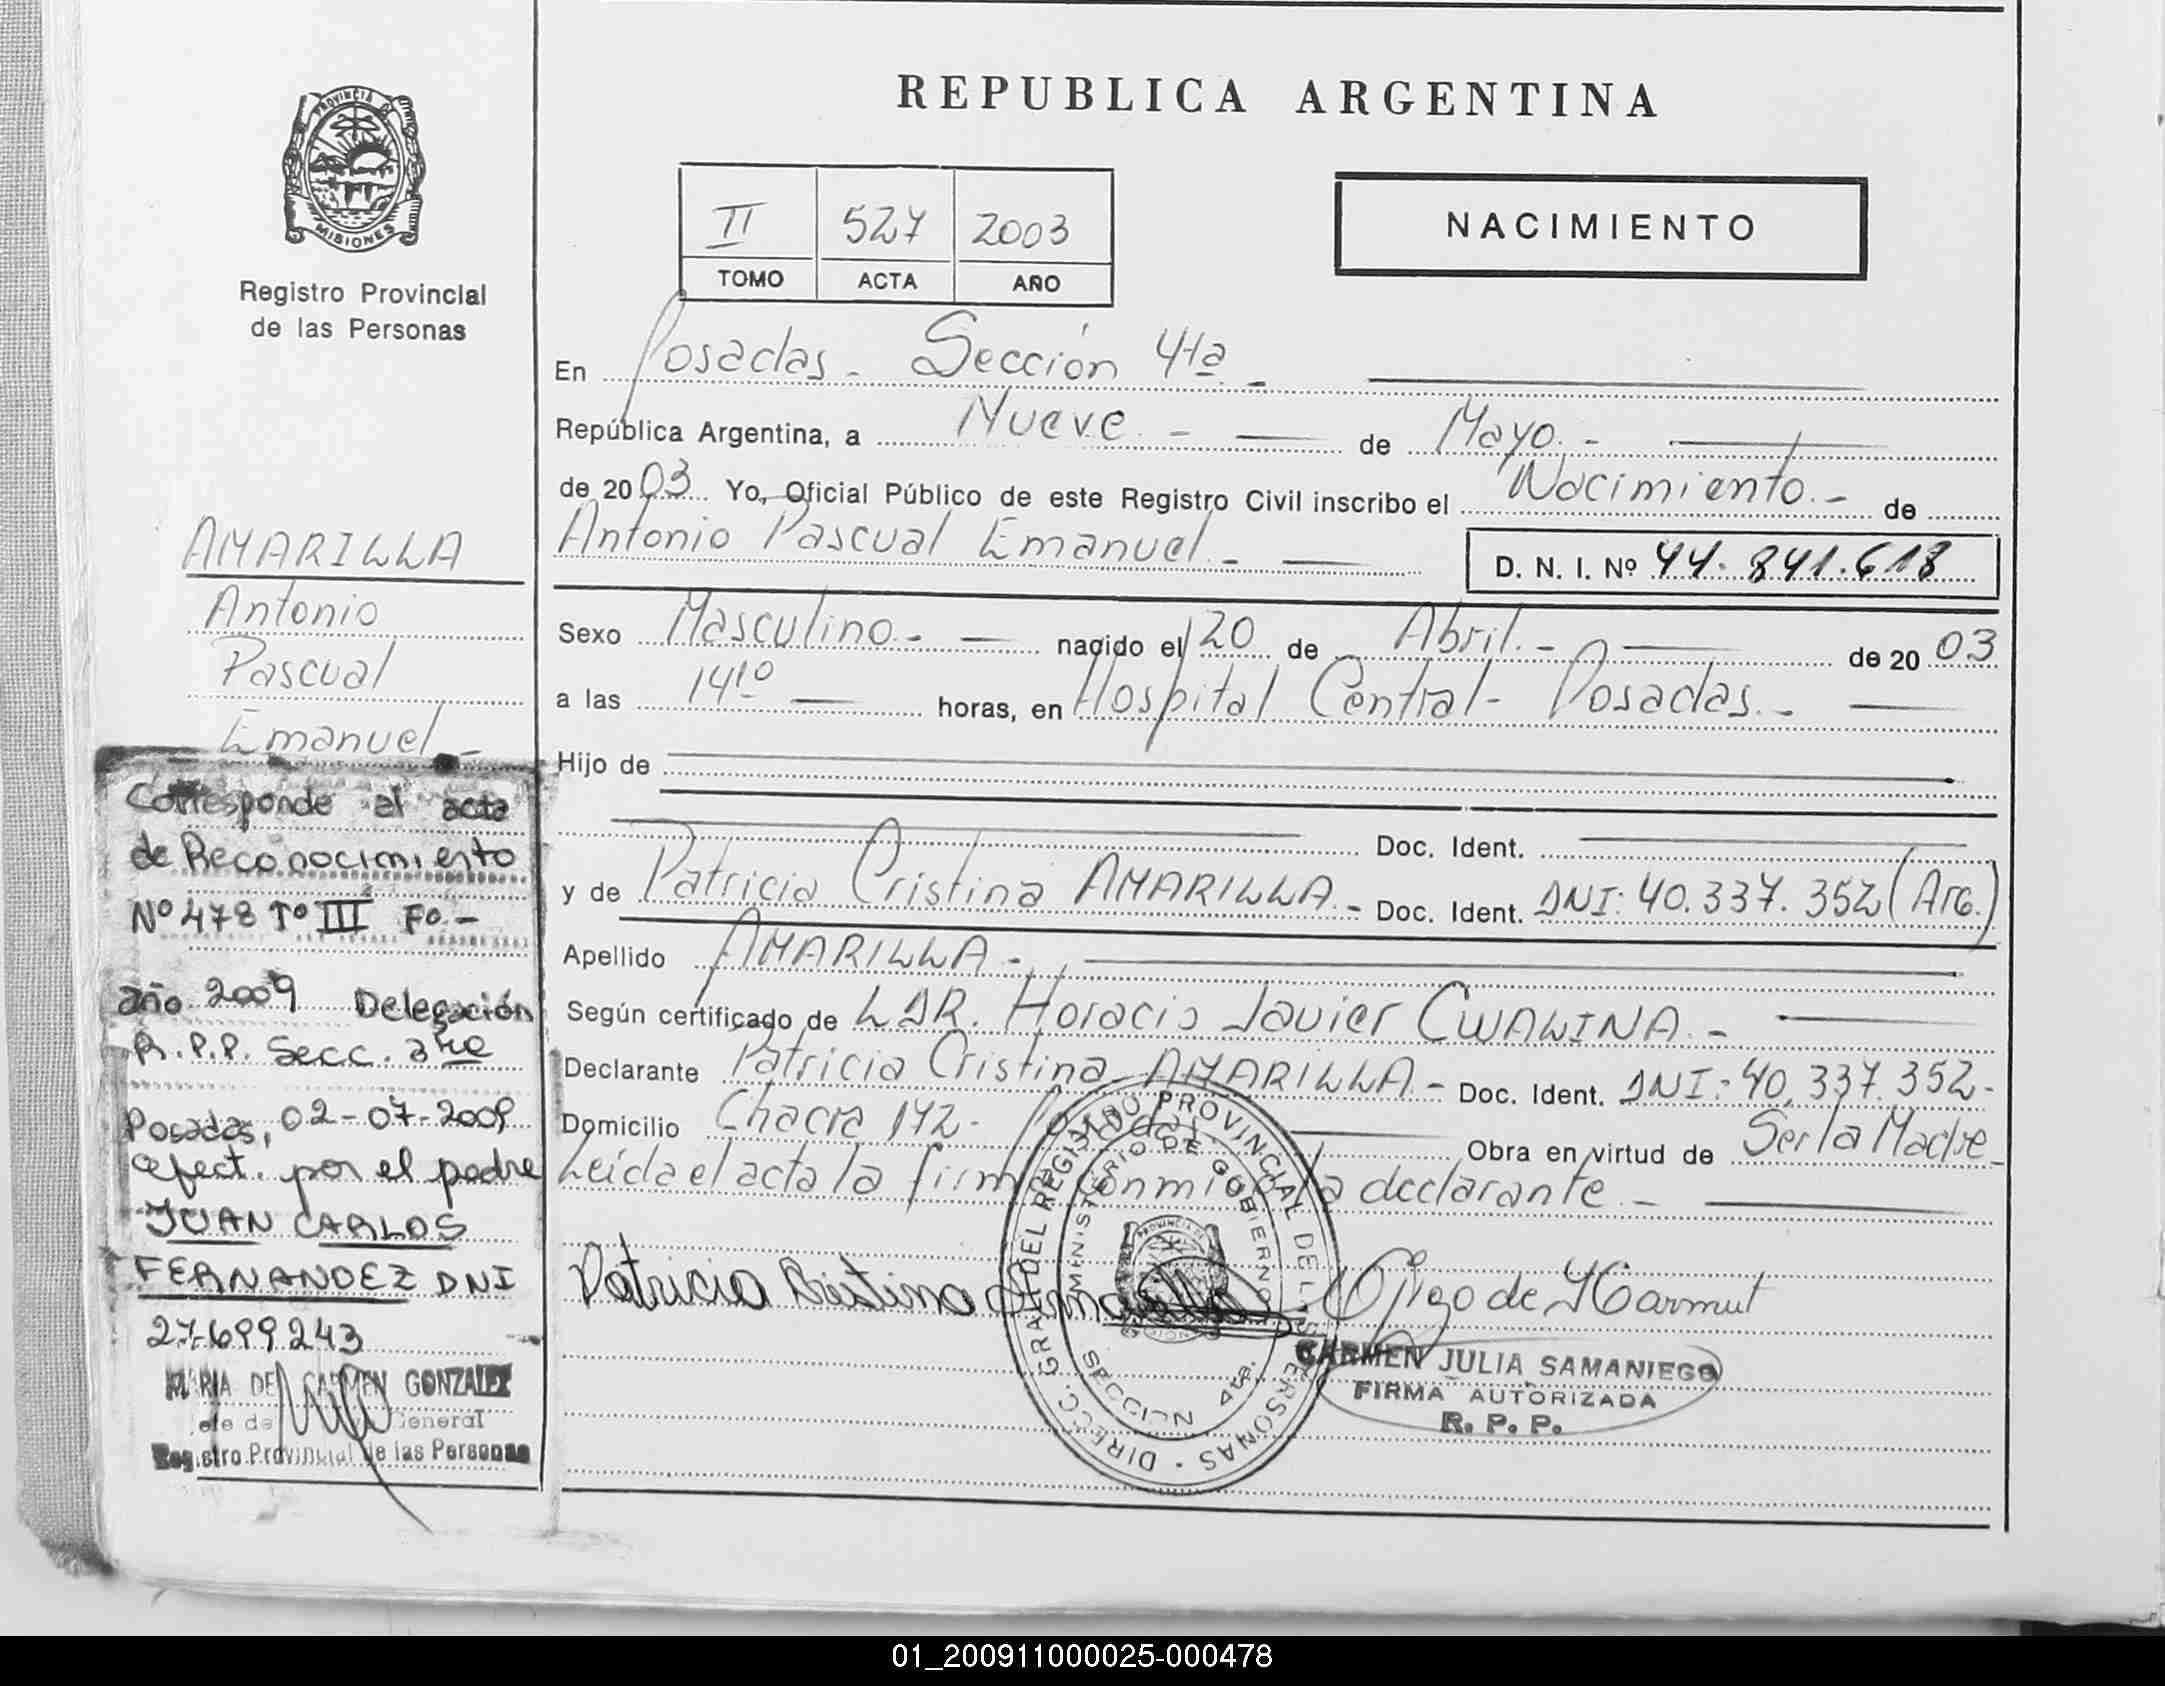 PROVINCIA DE
MISIONES
Registro Provincial
de las Personas
AMARILLA
Antonio
Pascual
Emanuel -
Corresponde al acta
de Reconocimiento
Nº 478 Tº III Fº -
año 2009 Delegación
R.P.P. Secc. 3ra
Posadas, 02-07-2009
efect. por el padre
JUAN CARLOS
FERNANDEZ DNI
27.699.243
MARIA DEL CARMEN GONZALEZ
General
Registro Provincial de las Personas
REPUBLICA ARGENTINA
II 527 2003
TOMO ACTA AÑO
NACIMIENTO
En Posadas - Sección 4ta -
República Argentina, a Nueve - de Mayo -
de 2003 Yo, Oficial Público de este Registro Civil inscribo el Nacimiento - de
Antonio Pascual Emanuel - D. N. I. Nº 44.841.618
Sexo Masculino - nacido el 20 de Abril - de 2003
a las 14 10 horas, en Hospital Central - Posadas -
Hijo de
Doc. Ident.
y de Patricia Cristina AMARILLA - Doc. Ident. DNI: 40.337.352 (Arg.)
Apellido AMARILLA -
Según certificado de LDR. Horacio Javier CWALINA -
Declarante Patricia Cristina AMARILLA - Doc. Ident. DNI: 40.337.352-
Domicilio Chacra 172 - Posadas - Obra en virtud de Ser la Madre
Leída el acta la firma conmigo la declarante -
Patricia Cristina Amarilla
DIRECC. GRAL. DEL REGISTRO PROVINCIAL DE LAS PERSONAS
MINISTERIO DE GOBIERNO
SECCION 4ta.
PROVINCIA DE
CARMEN JULIA SAMANIEGO
FIRMA AUTORIZADA
R. P. P.
01_200911000025-000478